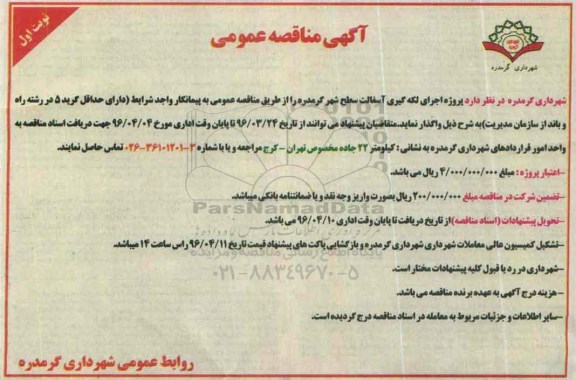 نوبت اول
آگهی مناقصه عمومی
شهرداری گرمدره
شهرداری گرمدره در نظر دارد پروژه اجرای لکه گیری آسفالت سطح شهر گرمدره را از طریق مناقصه عمومی به پیمانکار واجد شرایط (دارای حداقل گرید ۵ در رشته راه
و باند از سازمان مدیریت) به شرح ذیل واگذار نماید. متقاضیان پیشنهاد می توانند از تاریخ ۹۶/۰۳/۲۴ تا پایان وقت اداری مورخ ۹۶/۰۴/۰۴ جهت دریافت اسناد مناقصه به
واحد امور قراردادهای شهرداری گرمدره به نشانی : کیلومتر ۲۲ جاده مخصوص تهران - کرج مراجعه و یا با شماره ۳-۳۶۱۰۱۲۰۱-۰۲۶ تماس حاصل نمایند.
-اعتبار پروژه : مبلغ ۴/۰۰۰/۰۰۰/۰۰۰ ریال می باشد.
-تضمین شرکت در مناقصه مبلغ ۲۰۰/۰۰۰/۰۰۰ ریال بصورت واریز وجه نقد و یا ضمانتنامه بانکی میباشد.
-تحویل پیشنهادات (اسناد مناقصه) از تاریخ دریافت تا پایان وقت اداری ۹۶/۰۴/۱۰ می باشد.
-تشکیل کمیسیون عالی معاملات شهرداری شهرداری گرمدره و بازگشایی پاکت های پیشنهاد قیمت تاریخ ۹۶/۰۴/۱۱ راس ساعت ۱۴ میباشد.
-شهرداری در رد یا قبول کلیه پیشنهادات مختار است.
-هزینه درج آگهی به عهده برنده مناقصه می باشد.
-سایر اطلاعات و جزئیات مربوط به معامله در اسناد مناقصه درج گردیده است.
روابط عمومی شهرداری گرمدره
ParsNamadData
پایگاه اطلاع رسانی مناقصه و مزایده
۰۲۱-۸۸۳۴۹۶۷۰-۵